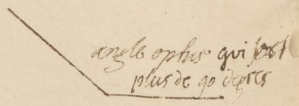 angle optus qui est
plus de 90 degres